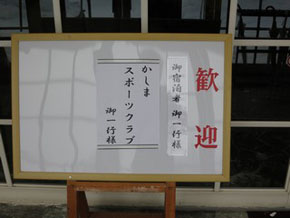 歓迎
御宿泊者 御一行様
かしま
スポーツクラブ
御一行様